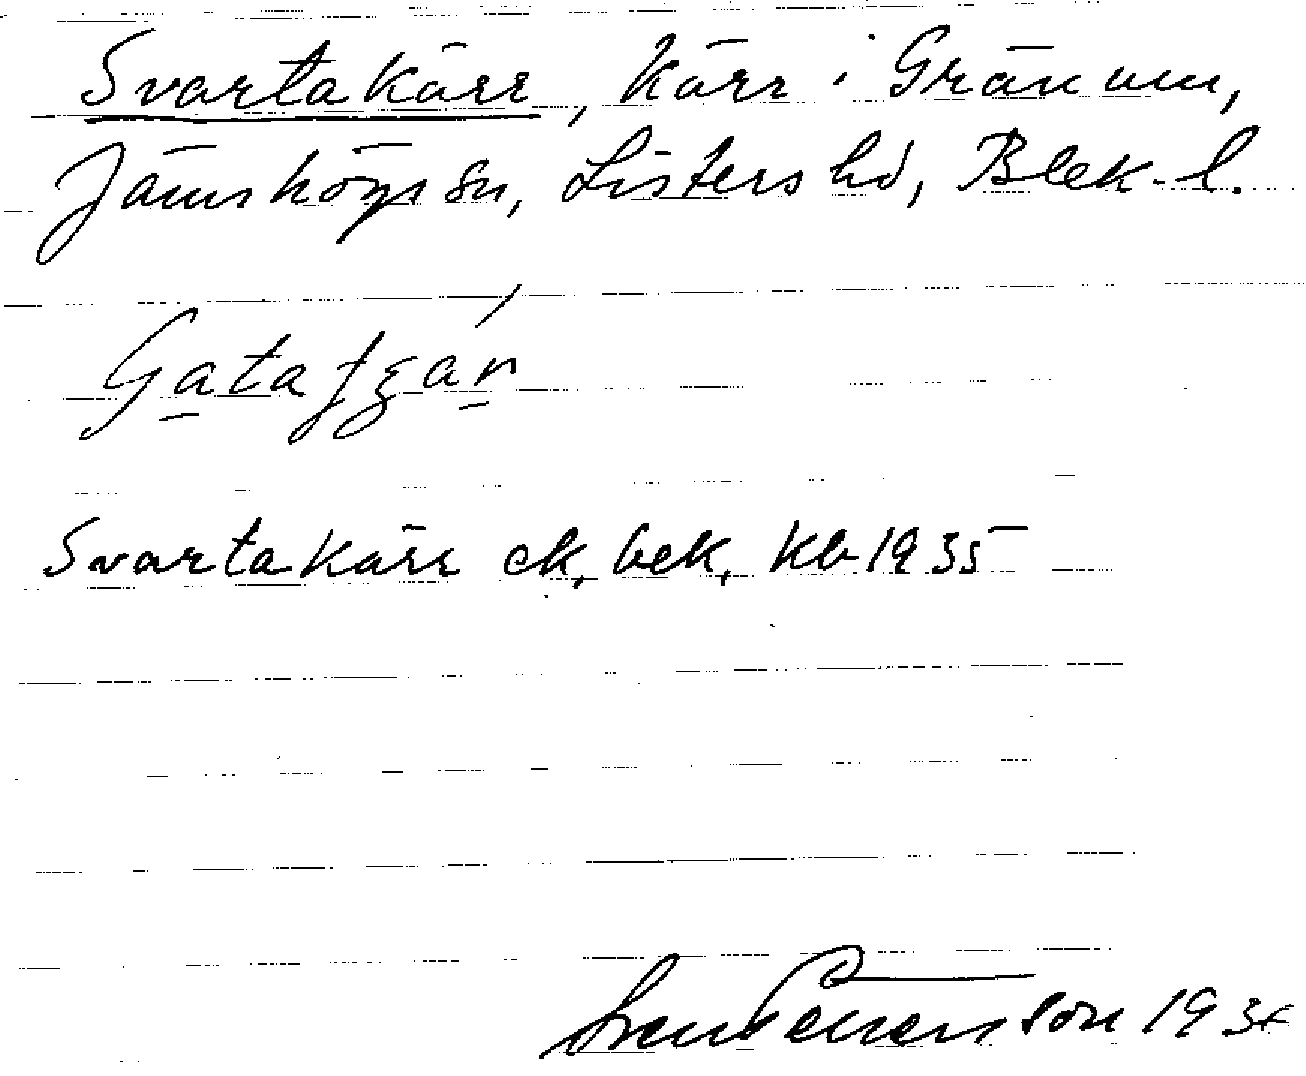 Svartakärr, kärr i Gränum,
Jämshögs sn, Listers hd, Blek. l.
Svartakärr ek, bek, kb 1935
Sven Petersson 19